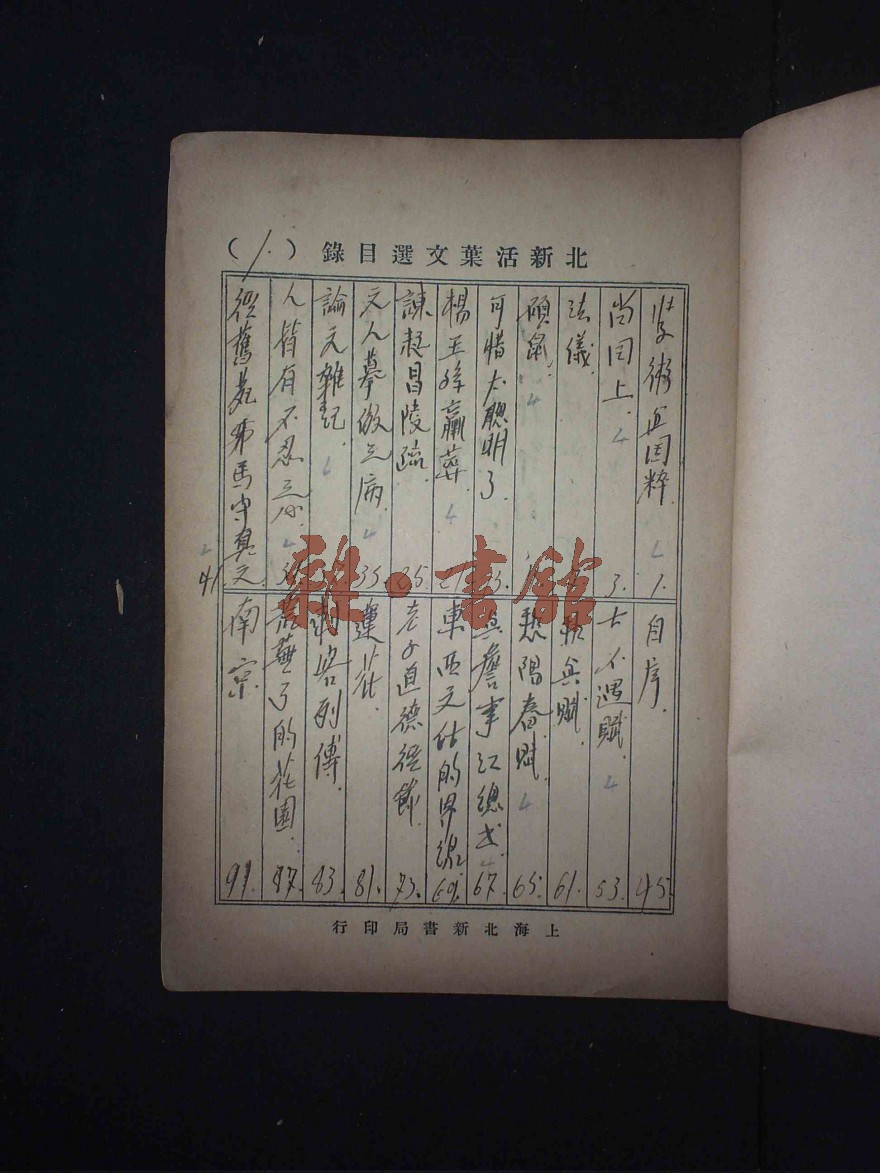 北新活葉文選目錄（1.）
學術與国粹. 1.
尚同上. 3.
法儀.
碩鼠.
可惜太聰明了
楊王孫臝葬. 21
諫起昌陵疏. 25
文人摹倣之病. 35
論文雜記.
人皆有不忍之心.
經舊苑弔馬守真文. 41
自序. 45.
士不遇賦. 53.
兵賦. 61.
愁陽春賦. 65.
與詹事江總書. 67.
東西文化的界線 69.
老子道德經 73.
蓮花. 81.
客列傳. 83.
荒蕪了的花園. 87.
南京 91.
上海北新書局印行
雜·書館